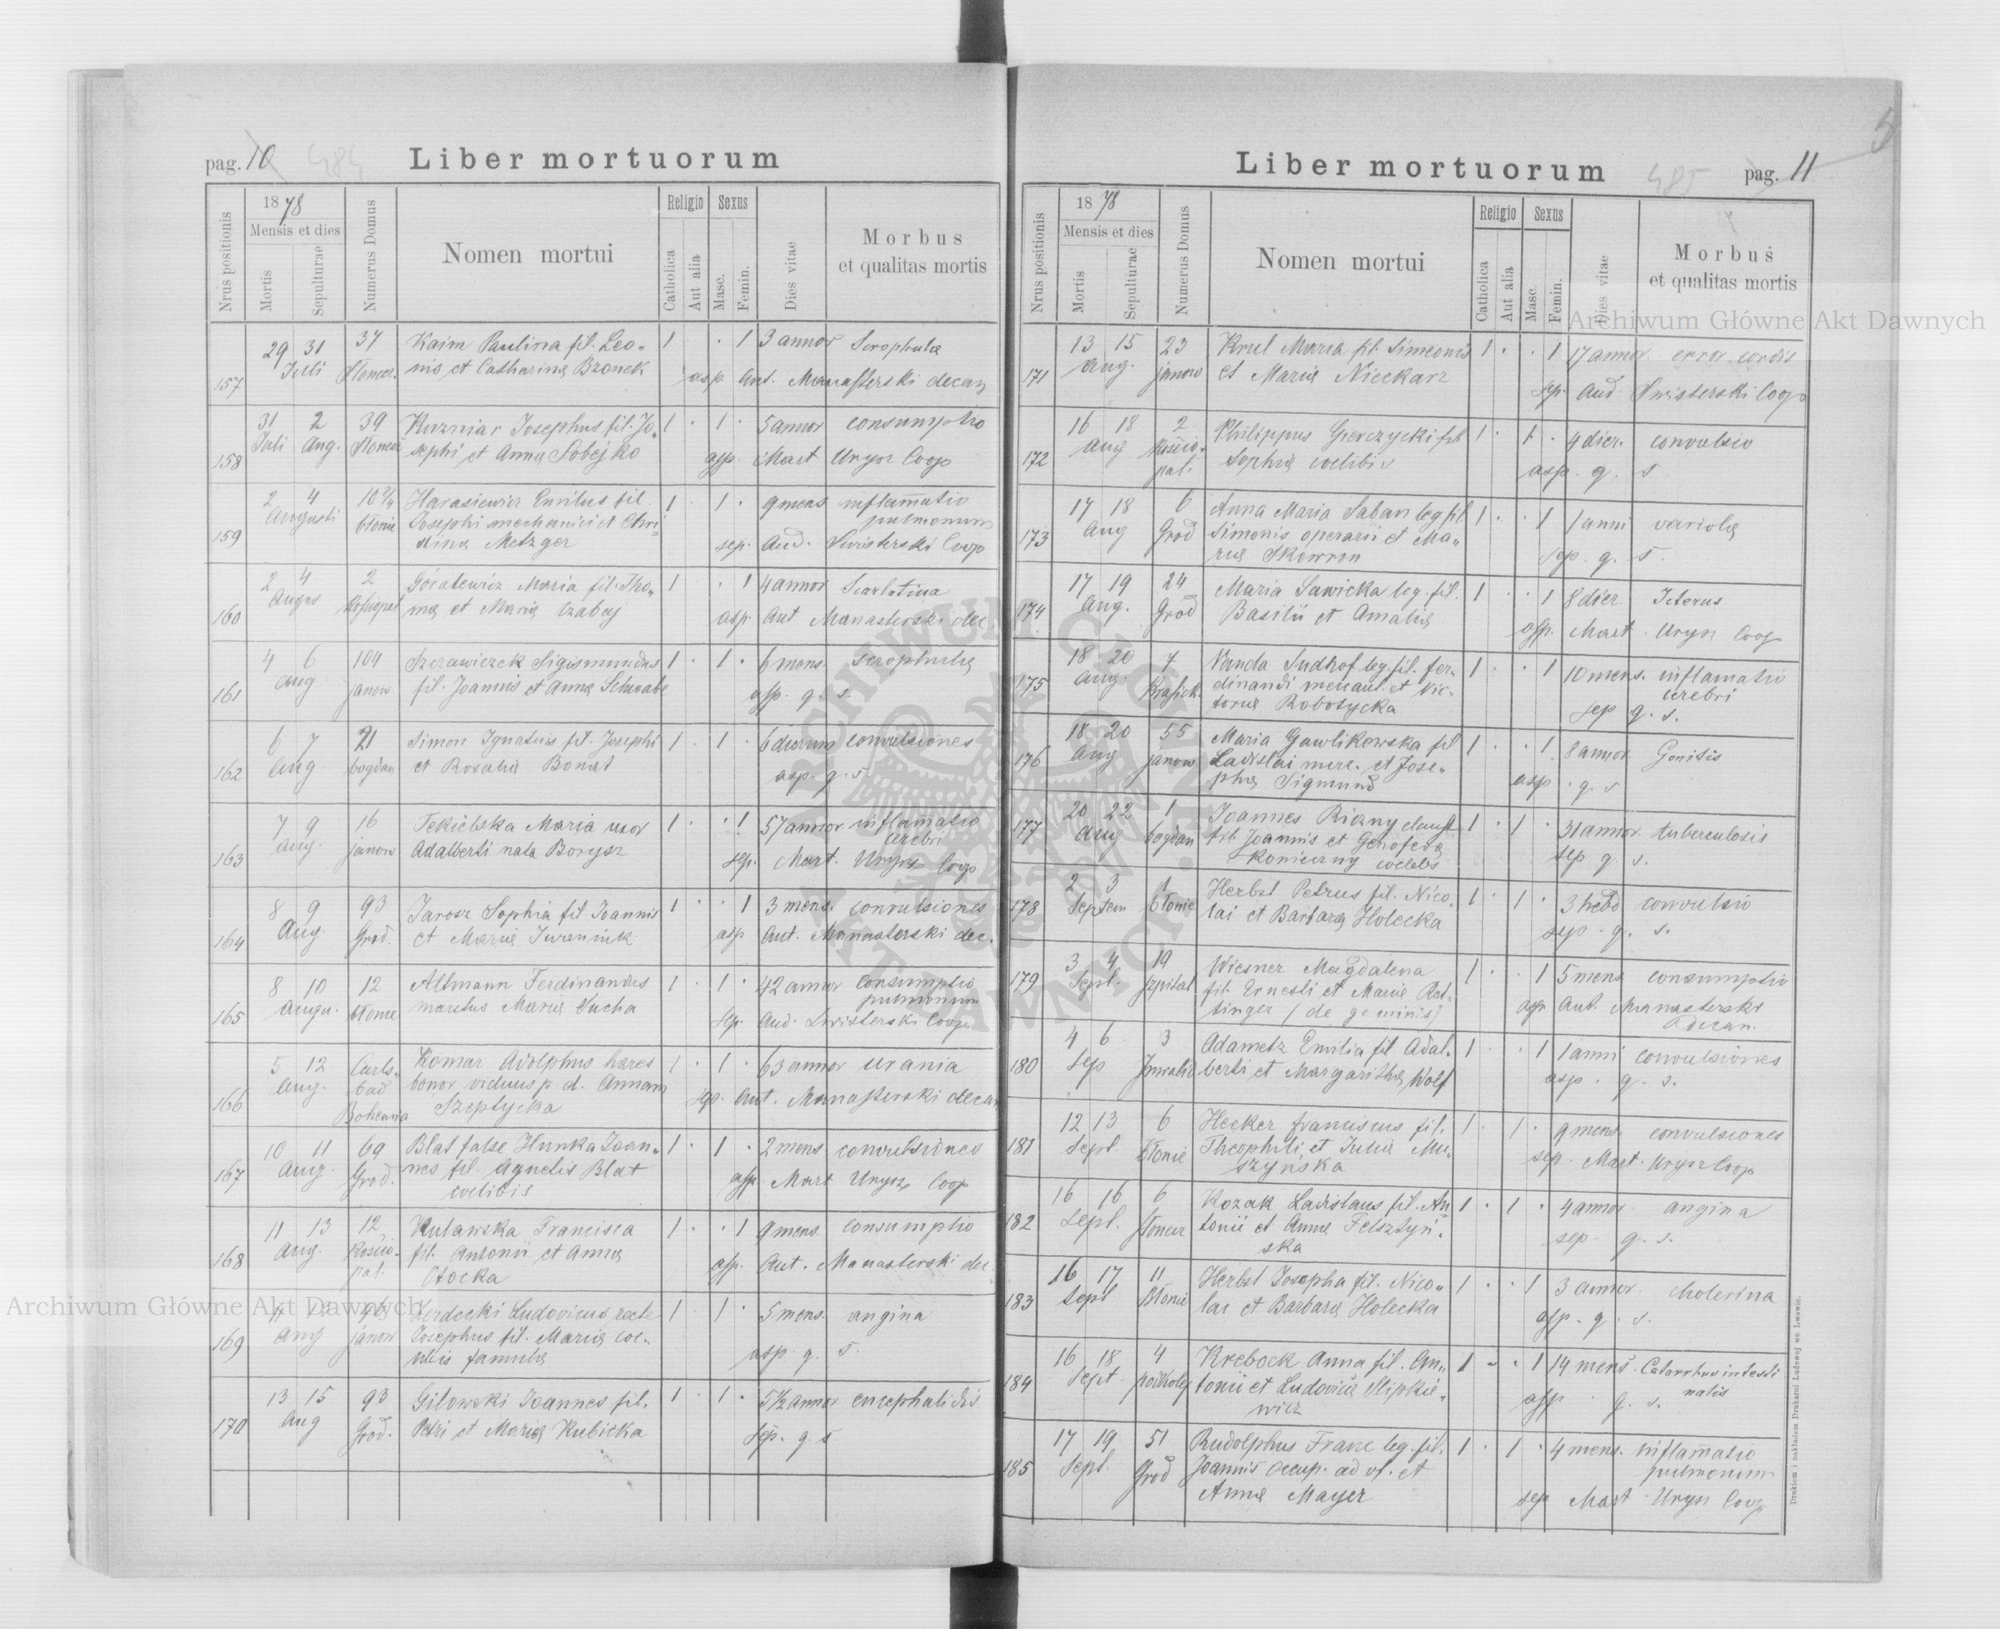 pag. 10 484
Liber mortuorum
Nrus positionis
1878
Mensis et dies
Mortis
Sepulturae
Numerus Domus
Nomen mortui
Religio
Catholica
Aut alia
Sexus
Masc.
Femin.
Dies vitae
Morbus
et qualitas mortis
157 29 31 Juli 37 Kaim Paulina fil. Leo-
nis et Catharina Bronek 1 1 3 annor
asp. Ant. Manasterski decan
158 31 Juli 2 Aug. 39 Kuzniar Josephus fil. Jo-
sephi et Anna Sobejko 1 1 5 annor consumptio
asp. Mart Urysz Coop
159 2 4 Augusti Harasiewicz fil.
Josephi mechanici et Chri-
stina Metzger 1 1 9 mens inflamatio
pulmonum
sep. Aud. Swisterski Coop
160 2 4 2 Góralewicz Maria fil. Tho-
ma et Maria Czabaj 1 1 4 annor Scarlatina
asp. Ant Manasterski dec.
161 4 6 Aug 104 janow Szczawiczek Sigismundus
fil. Joannis et Anna Schwabe 1 1 6 mens. scrophula
asp. q. s.
162 6 7 Aug. 21 bogdan Simon Ignatius fil. Josephi
et Rosalia Bonat 1 1 6 dierum convulsiones
asp. q. s
163 7 9 Aug. 16 janow Tekielska Maria uxor
Adalberti nata Borysz 1 1 57 annor inflamatio
cerebri
sep. Mart. Urysz Coop
164 8 9 Aug. 93 Grod. Jarosz Sophia fil Joannis
et Maria Iwaniuk 1 1 3 mens. convulsiones
asp Ant. Manasterski dec.
165 8 10 Augu. 12 błonie Altmann Ferdinandus
maritus Maria Sucha 1 1 42 annor consumptio
pulmonum
sep. Aud. Swisterski Coop
166 5 12 Aug. Carls-
bad
Bohemia Komar Adolphus haeres
bonor viduus p. d. Annam
Szeptycka 1 1 63 annor urania
sep. Ant. Manasterski decan
167 10 11 Aug. 69 Grod. Blat false Hunka Joan-
nes fil. Agnetis Blat
coelibis 1 1 2 mens convulsiones
asp Mart Urysz Coop
168 11 13 Aug. 12 Koscio-
pal. Kulawska Francisca
fil. Antonii et Anna
Otocka 1 1 9 mens. consumptio
asp. Ant. Manasterski dec
169 Aug janow Ludovicus recte
Josephus fil. Maria coe-
libis famula 1 1 5 mens. angina
asp. q. s.
170 13 15 Aug 93 Grod. Gilowski Joannes fil.
Petri et Maria Kubicka 1 1 5½ annor encephalidis
sep. q s
Liber mortuorum
485 pag. 11
5
Nrus positionis
1878
Mensis et dies
Mortis
Sepulturae
Numerus Domus
Nomen mortui
Religio
Catholica
Aut alia
Sexus
Masc.
Femin.
Dies vitae
Morbus
et qualitas mortis
171 13 15 Aug. 23 janow Krul Maria fil. Simeonis
et Maria Nieckarz 1 1 17 annor. cordis
sep. Aud. Swisterski Coop
172 16 18 Aug 2 Koscio-
pal. Philippus fil
Sophia coelibis 1 1 4 dier. convulsio
asp. q. s
173 17 18 Aug 6 Grod Anna Maria Saban leg fil
Simonis operarii et Ma-
ria Skowron 1 1 1 anni variola
sep. q. s.
174 17 19 Aug. 24 Grod Maria Sawicka leg. fil.
Basilii et Amalia 1 1 8 dier. Icterus
asp. Mart. Urysz Coop
175 18 20 Aug. 7 Wanda Sudhof leg. fil. Fer-
dinandi et Vic-
toria Robotycka 1 1 10 mens. inflamatio
cerebri
sep q. s.
176 18 20 Aug 55 janow Maria Gawlikowska fil
Ladislai merc. et Jose-
pha Sigmund 1 1 8 annor. Gonitis
asp. q. s
177 20 22 Aug 1 bogdan Joannes Rizny
fil. Joannis et Genofeva
Konieczny coelebs 1 1 31 annor. tuberculosis
sep q. s.
178 2 3 Septem 1 błonie Herbst Petrus fil. Nico-
lai et Barbara Holecka 1 1 3 hebd convulsio
sep. q. s.
179 3 4 Sept. 19 szpital Wiesner Magdalena
fil. Ernesti et Maria Rot-
tinger (de geminis) 1 1 5 mens consumptio
asp Ant. Manasterski
decan.
180 4 6 Sep 3 Adametz Emilia fil Adal-
berti et Margaritha Wolf 1 1 1 anni convulsiones
asp. q. s.
181 12 13 Sept. 6 błonie Hecker Franciscus fil.
Theophili et Julia Mu-
szynska 1 1 9 mens. convulsiones
sep. Mart. Urysz Coop
182 16 16 Sept. 6 Kozak Ladislaus fil. An-
tonii et Anna Felsztyń-
ska 1 1 4 annor. angina
sep. q. s.
183 16 17 Sept 11 błonie Herbst Josepha fil. Nico-
lai et Barbara Holecka 1 1 3 annor. cholerina
asp. q. s.
184 16 18 Sept. 4 Krebock Anna fil. An-
tonii et Ludovica Slipkie-
wicz 1 1 14 mens. Catarrhus intesti
nalis
asp q. s.
185 17 19 Sept. 51 Grod Rudolphus Franz leg. fil.
Joannis occup. ad vf. et
Anna Mayer 1 1 4 mens. inflamatio
pulmonum
sep Mart Urysz Coop
Drukiem i nakładem Drukarni Ludowej we Lwowie.
Archiwum Główne Akt Dawnych
Archiwum Główne Akt Dawnych